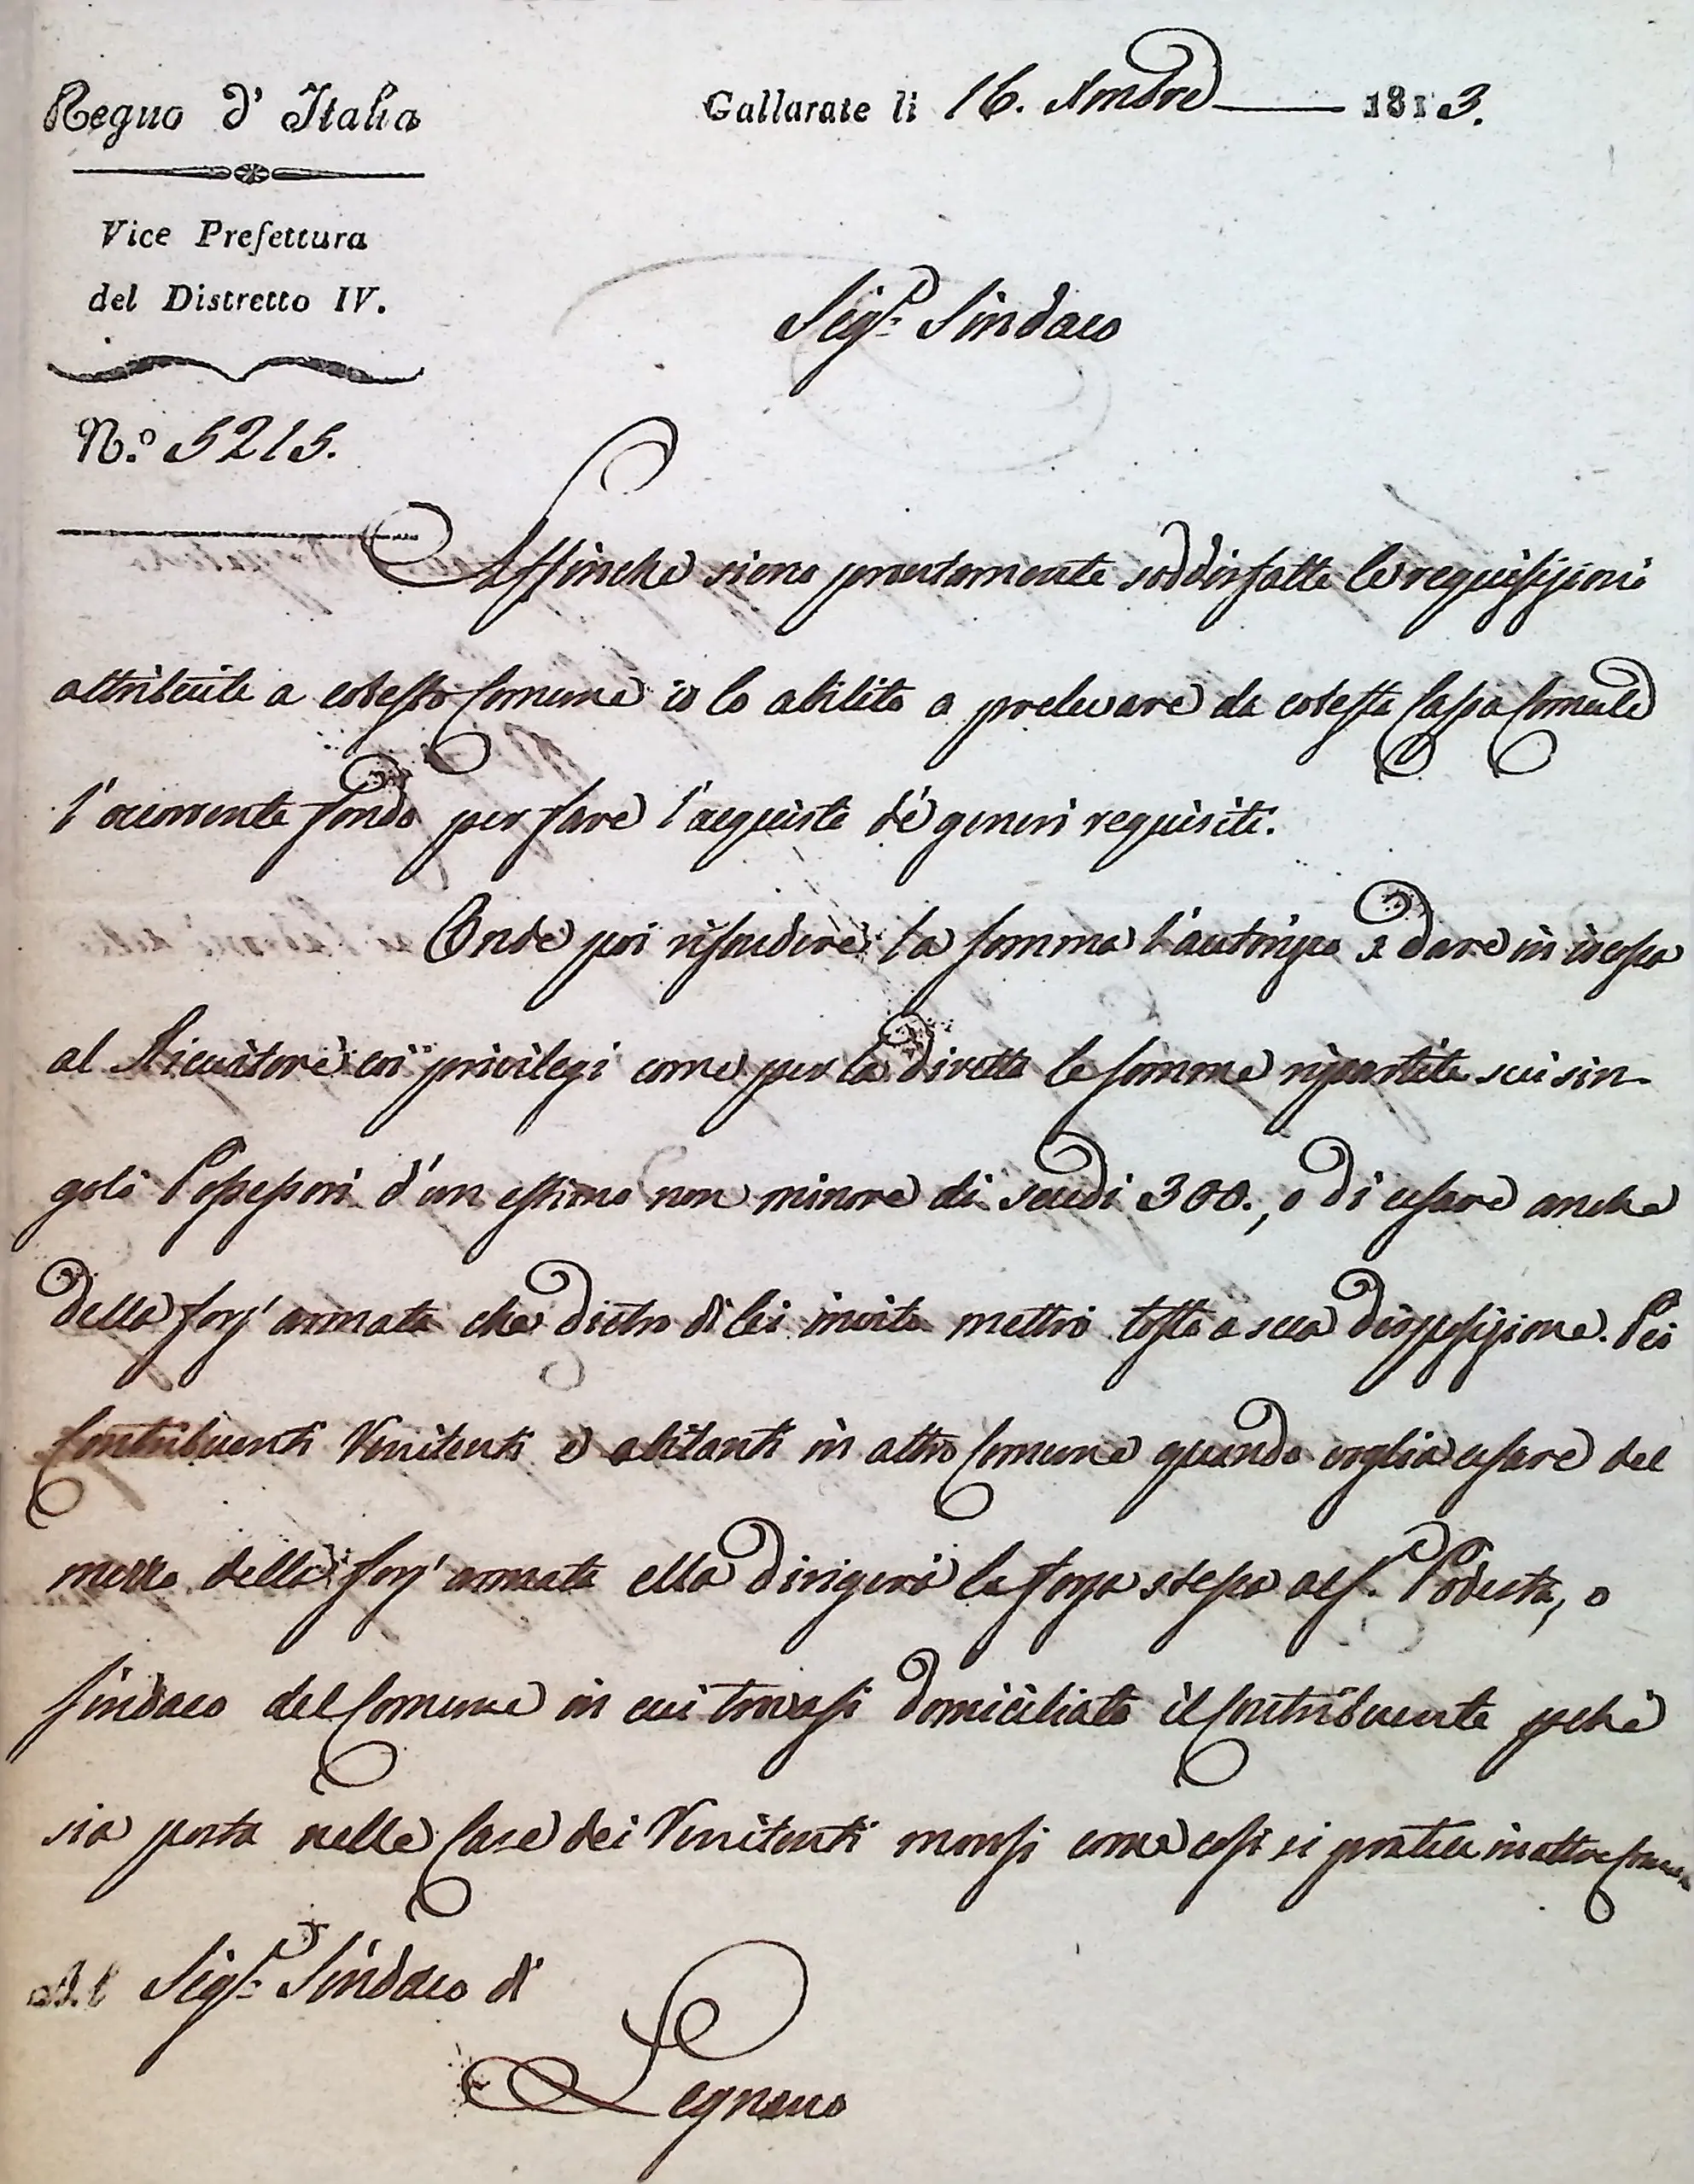 Regno d' Italia
Gallarate li 16. Xmbre 1813.
Vice Prefettura
del Distretto IV.
Sigr. Sindaco
N.o 5215.
Affinchè siano prontamente soddisfatte le requisizioni
attribuite a codesto Comune io lo abilito a prelevare da codesta Cassa Comunale
l'occorrente fondo per fare l'acquisto de' generi requisiti.
Onde poi rifondere la somma l'autorizzo a dare in iscossa
al Ricevitore coi privilegi come per la diretta le somme ripartite sui sin-
goli Possessori d'un estimo non minore di scudi 300., e di usare anche
della forz' armata che dietro di lei invito metterò tosto a sua disposizione. Pei
Contribuenti Renitenti e abitanti in altro Comune quando voglia usare del
mezzo della forz' armata ella dirigerà la forza stessa al S.r Podestà, o
Sindaco del Comune in cui trovasi domiciliato il Contribuente pchè
sia posta nelle Case dei Renitenti morosi come così si pratica in altre
Al Sigr. Sindaco di
Legnano